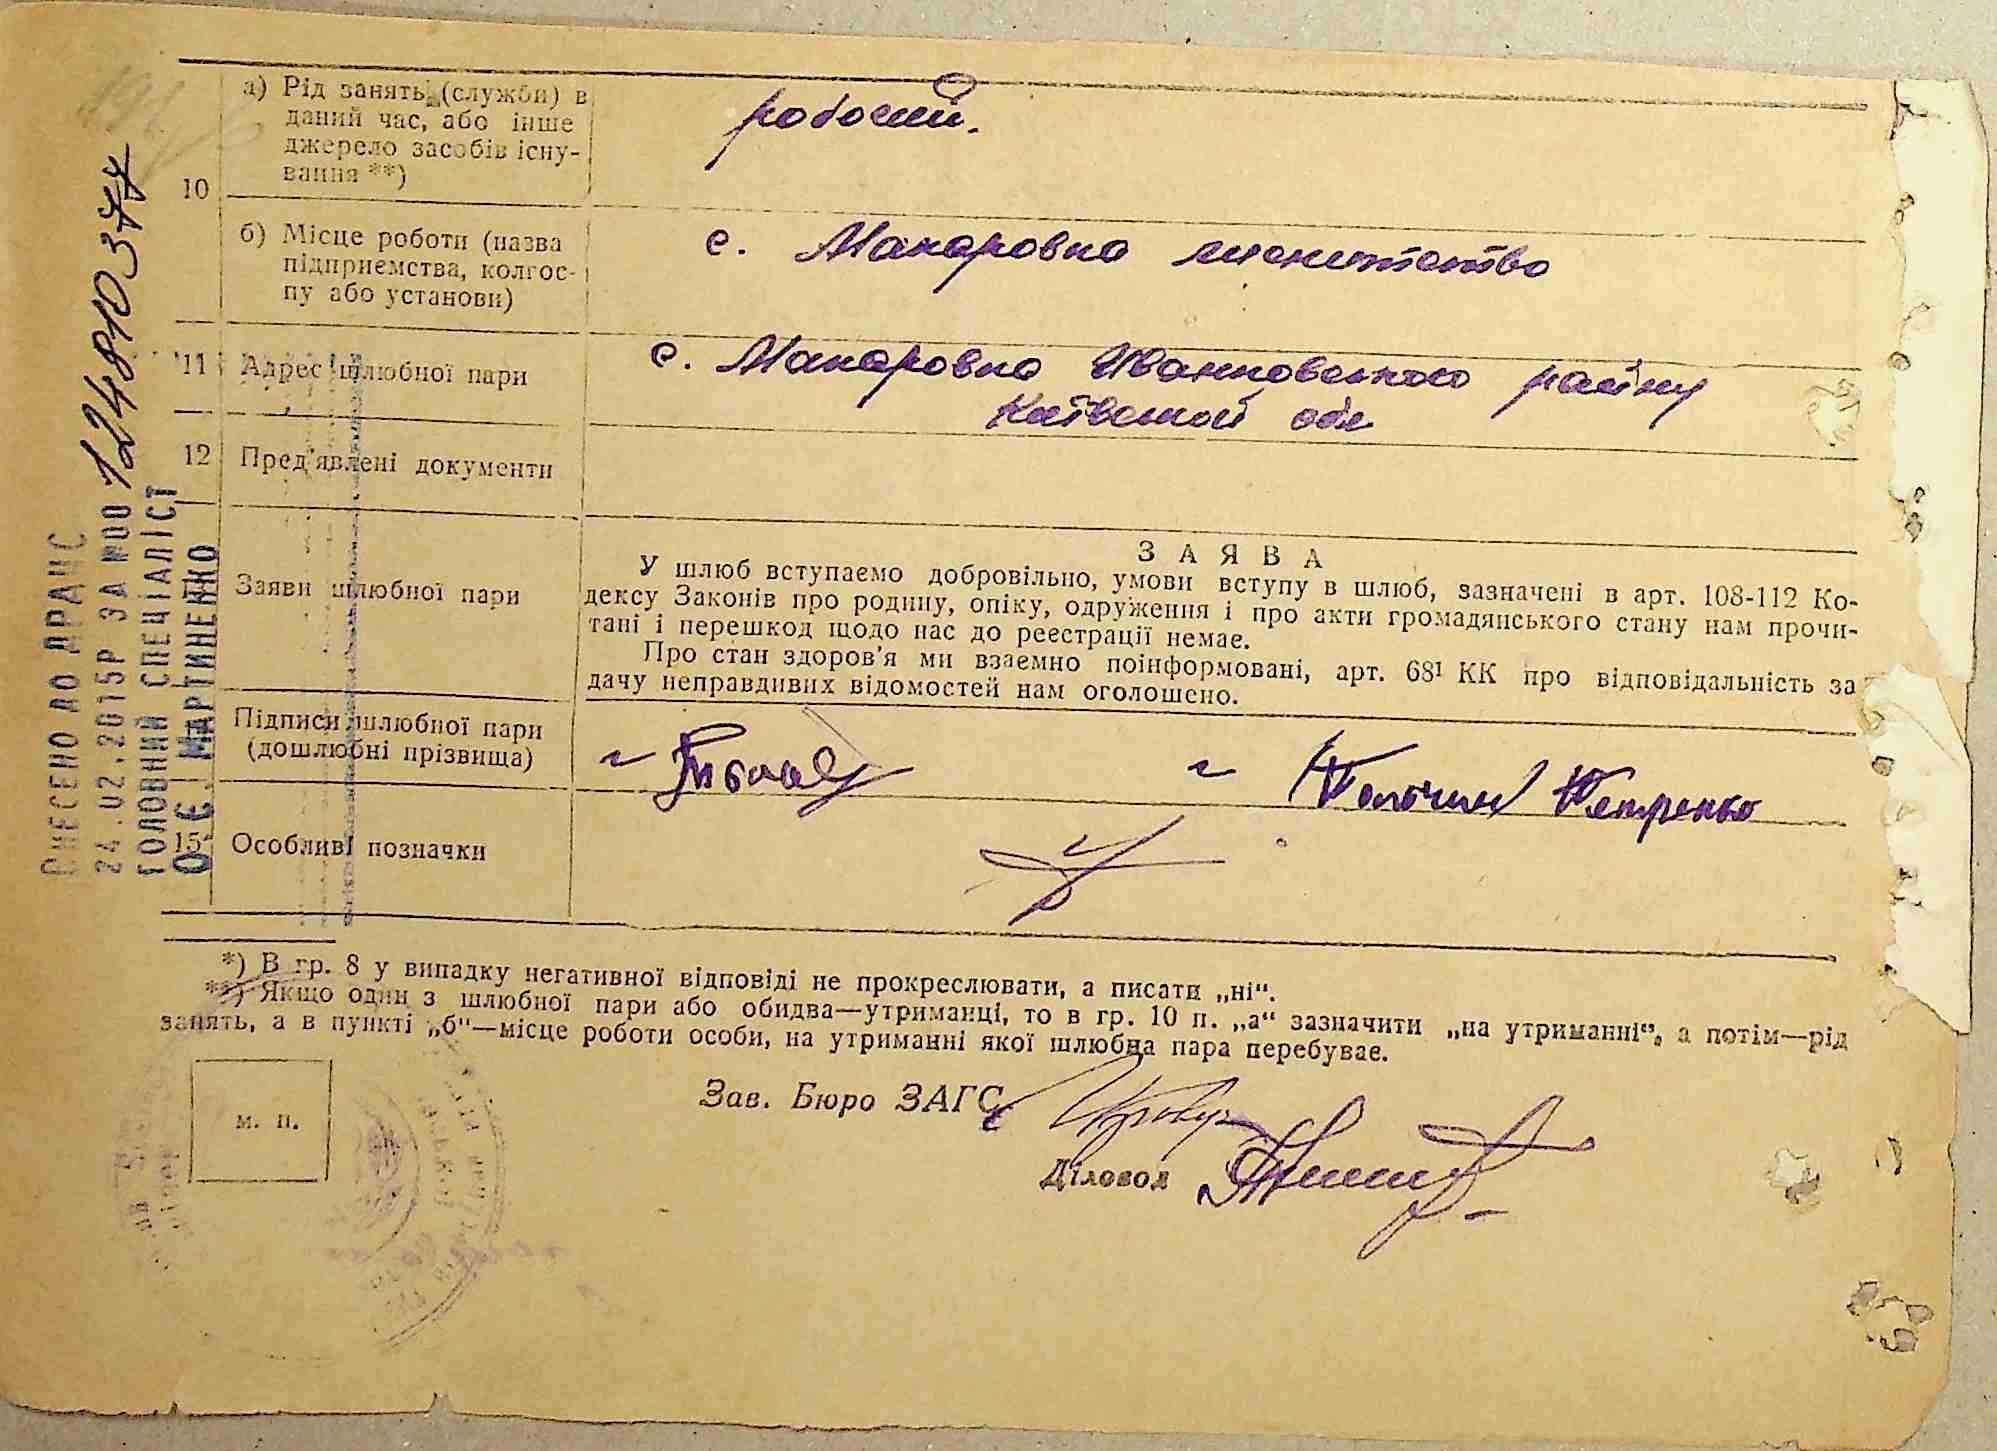 а) Рід занять (служби) в
даний час, або інше
джерело засобів існу-
вання **)
робочий.
10
б) Місце роботи (назва
підприємства, колгос-
пу або установи)
с. Макаровка
11
Адрес шлюбної пари
с. Макаровка Иванковського району
Київської обл
12
Пред'явлені документи
Заяви шлюбної пари
ЗАЯВА
У шлюб вступаємо добровільно, умови вступу в шлюб, зазначені в арт. 108-112 Ко-
дексу Законів про родину, опіку, одруження і про акти громадянського стану нам прочи-
тані і перешкод щодо нас до реєстрації немає.
Про стан здоров'я ми взаємно поінформовані, арт. 68¹ КК про відповідальність за
дачу неправдивих відомостей нам оголошено.
Підписи шлюбної пари
(дошлюбні прізвища)
Петренко
15
Особливі позначки
*) В гр. 8 у випадку негативної відповіді не прокреслювати, а писати „ні“.
**) Якщо один з шлюбної пари або обидва—утриманці, то в гр. 10 п. „а“ зазначити „на утриманні“, а потім—рід
занять, а в пункті „б“—місце роботи особи, на утриманні якої шлюбна пара перебуває.
м. п.
Зав. Бюро ЗАГС
Діловод
ВНЕСЕНО ДО ДРАЦС
24.02.2015Р ЗА №00 124810377
ГОЛОВНИЙ СПЕЦІАЛІСТ
О.Є. МАРТИНЕНКО